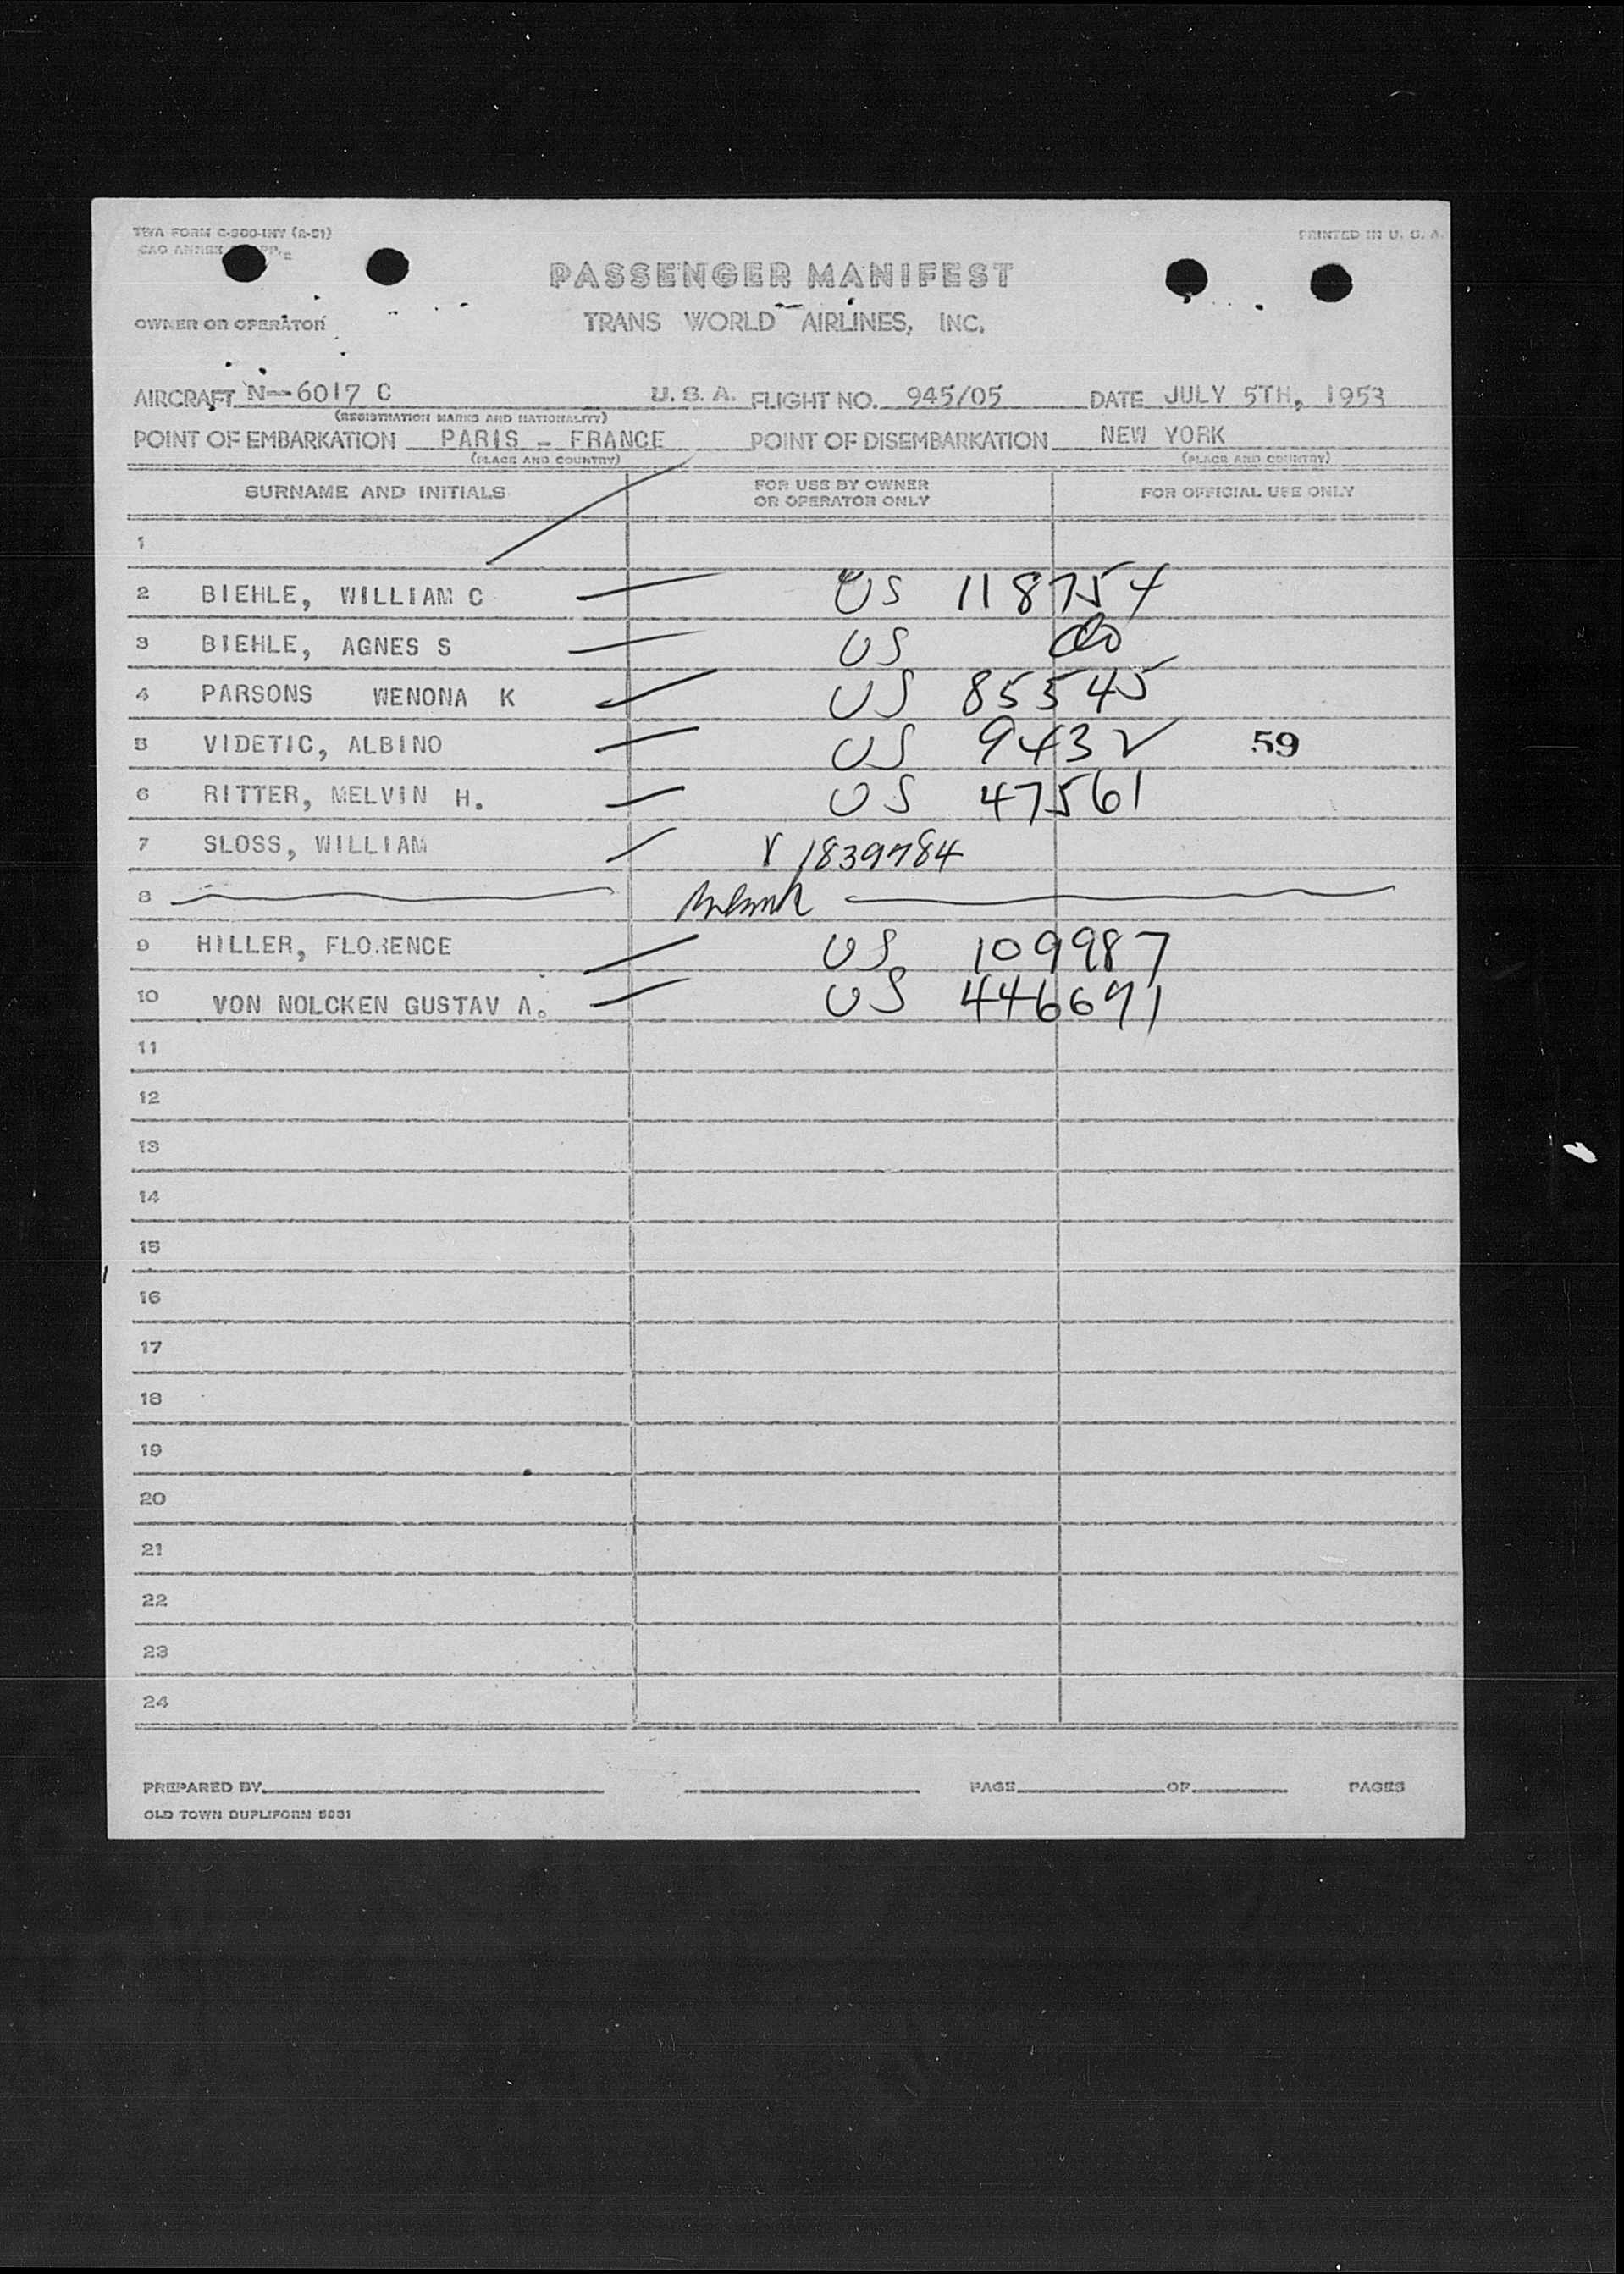 TWA FORM C-300-INT (2-51)
PRINTED IN U. S. A.
PASSENGER MANIFEST
OWNER OR OPERATOR
TRANS WORLD AIRLINES, INC.
AIRCRAFT N-6017 C U. S. A. FLIGHT NO. 945/05 DATE JULY 5TH, 1953
(REGISTRATION MARKS AND NATIONALITY)
POINT OF EMBARKATION PARIS - FRANCE POINT OF DISEMBARKATION NEW YORK
(PLACE AND COUNTRY) (PLACE AND COUNTRY)
SURNAME AND INITIALS FOR USE BY OWNER OR OPERATOR ONLY FOR OFFICIAL USE ONLY
1
2 BIEHLE, WILLIAM C US 118754
3 BIEHLE, AGNES S US do
4 PARSONS WENONA K US 85545
5 VIDETIC, ALBINO US 9432 59
6 RITTER, MELVIN H. US 47561
7 SLOSS, WILLIAM V 1839784
8
9 HILLER, FLORENCE US 109987
10 VON NOLCKEN GUSTAV A. US 446691
11
12
13
14
15
16
17
18
19
20
21
22
23
24
PREPARED BY PAGE OF PAGES
OLD TOWN DUPLIFORM